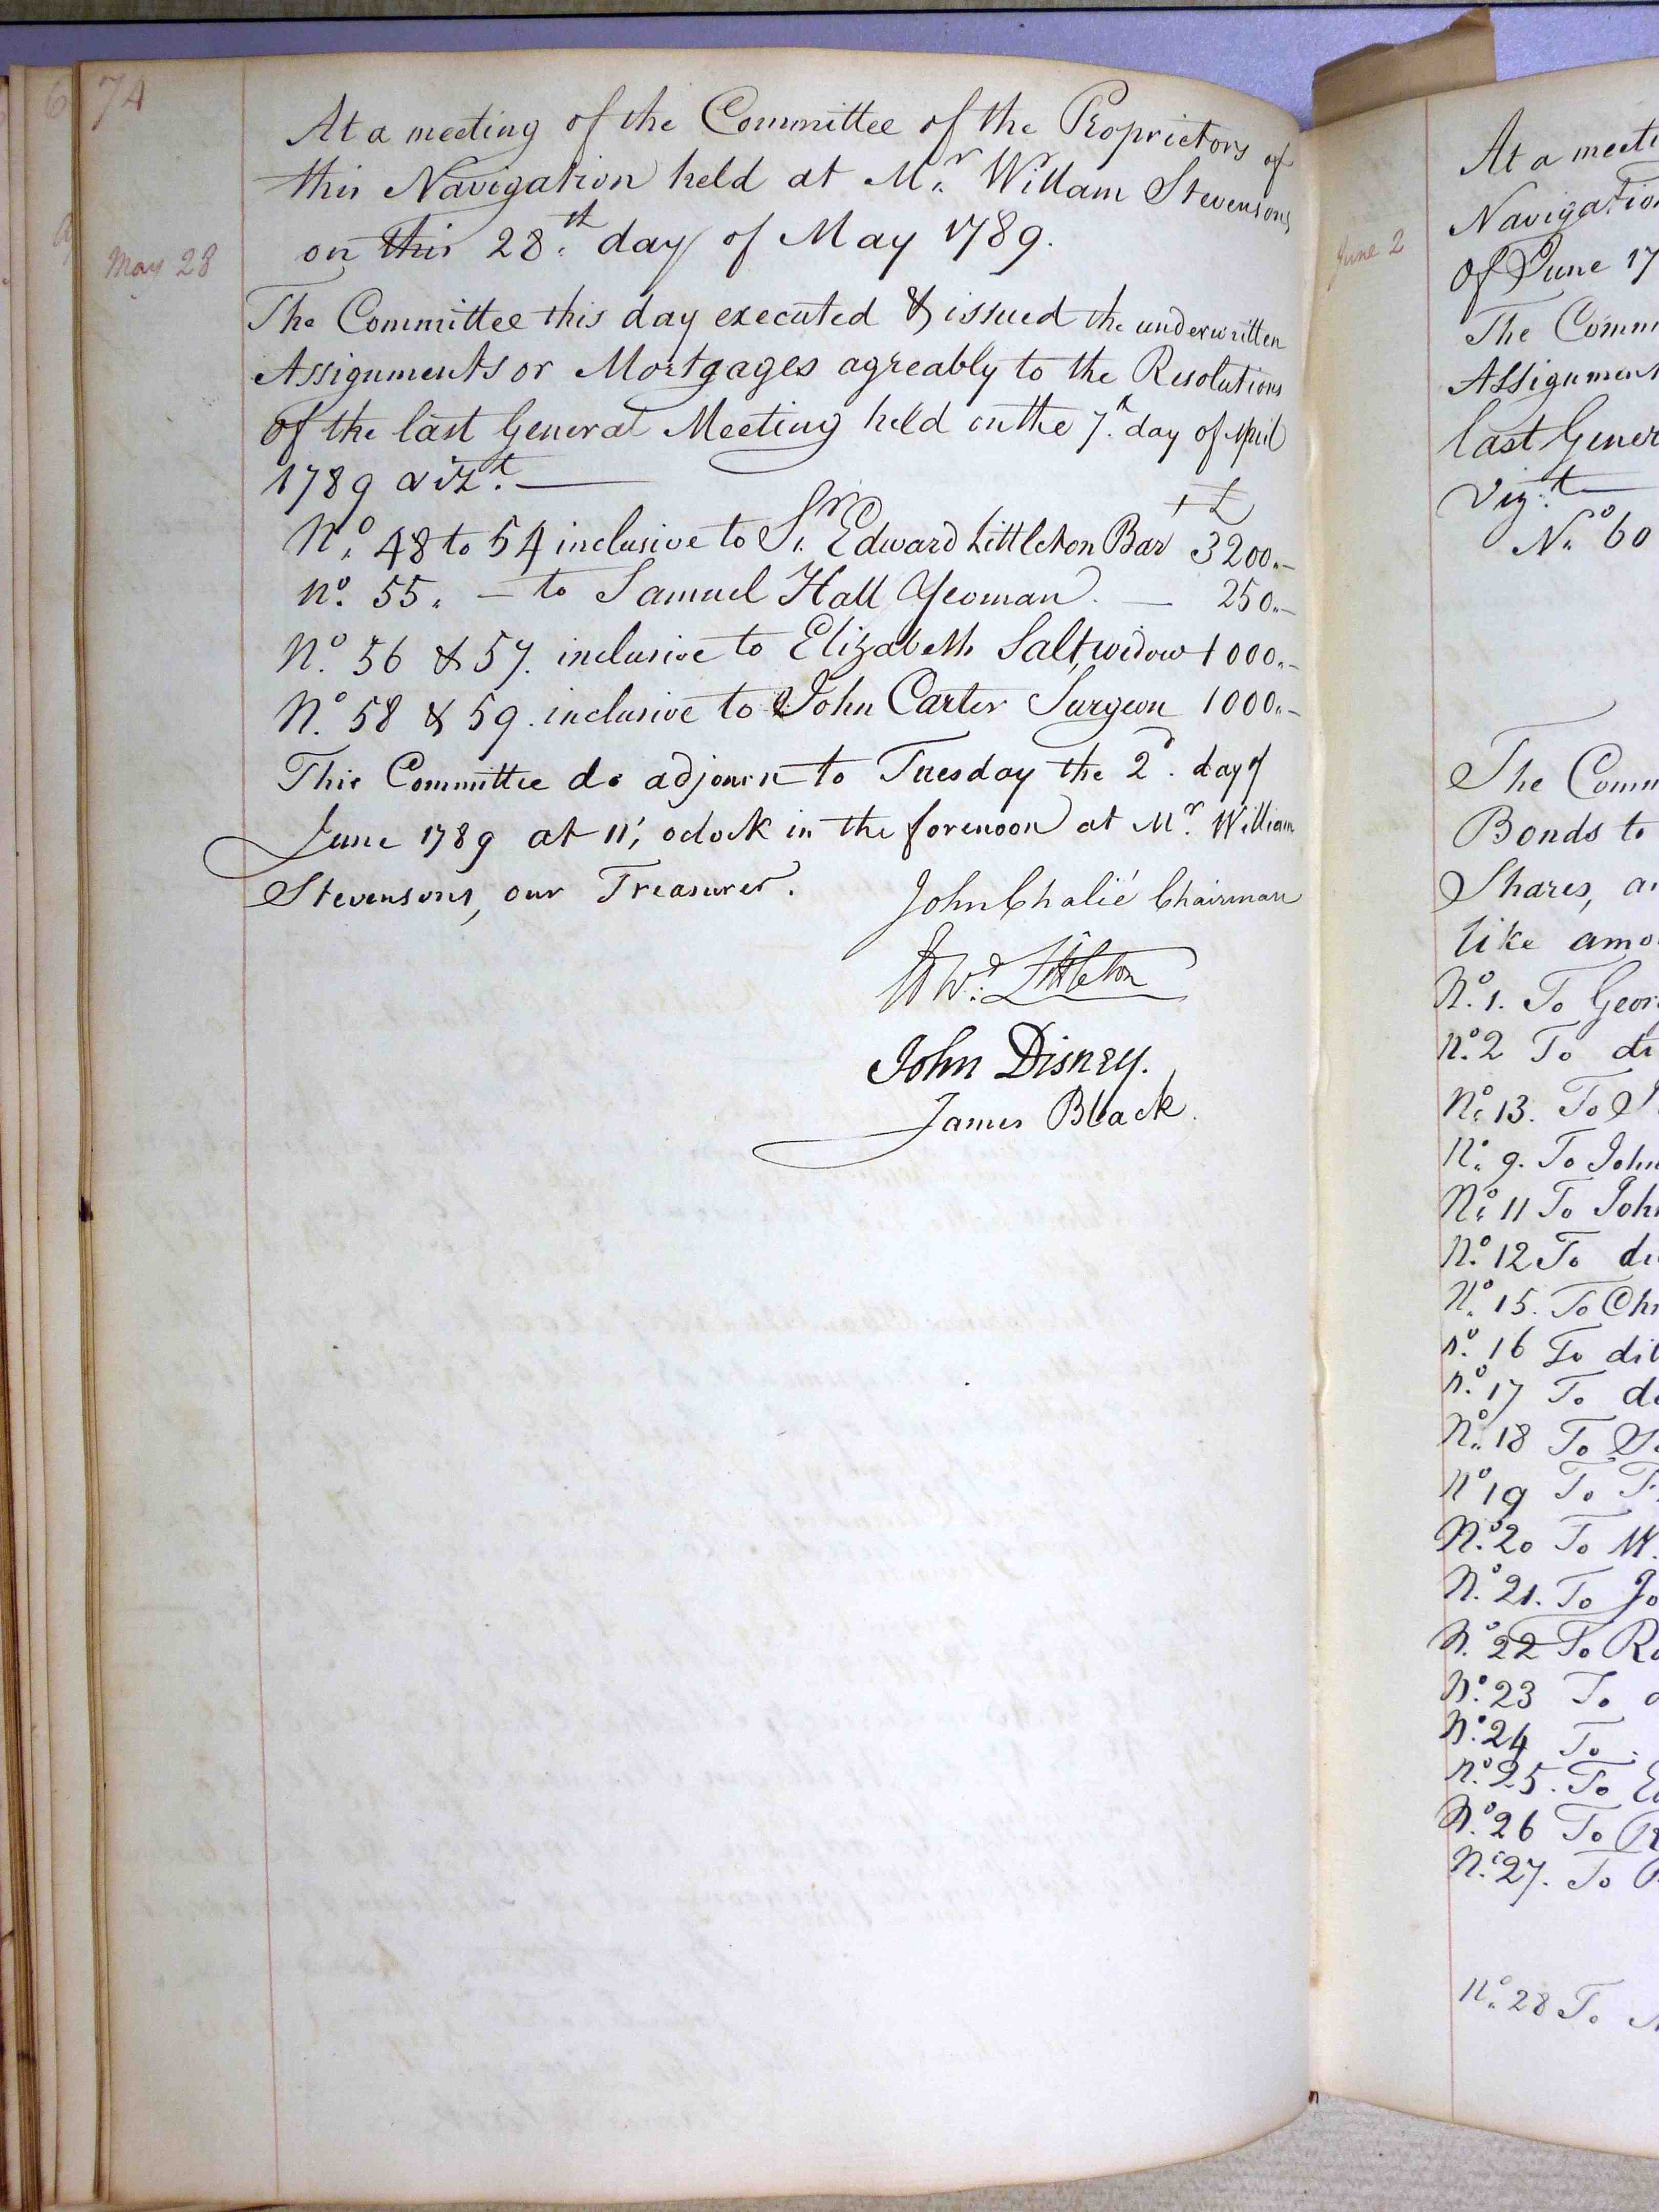 74
At a meeting of the Committee of the Proprietors of
this Navigation held at Mr. William Stevensons
on this 28th. day of May 1789.
May 28
The Committee this day executed & issued the underwritten
Assignments or Mortgages agreably to the Resolutions
of the last General Meeting held on the 7th. day of April
1789 vizt. —
£
No. 48 to 54 inclusive to Sr. Edward Littleton Bar 3200.–
No. 55. – to Samuel Hall Yeoman. — 250.–
No. 56 & 57. inclusive to Elizabeth Salt, widow 1000.–
No. 58 & 59. inclusive to John Carter Surgeon 1000.–
This Committee do adjourn to Tuesday the 2d. day of
June 1789 at 11, oclock in the forenoon at Mr. William
Stevensons, our Treasurer.
John Chalié Chairman
Edwd. Littleton
John Disney.
James Black.
June 2
At a meeti
Navigation
of June 17
The Comm
Assignment
last Gener
Vizt. —
No. 60
The Comm
Bonds to
Shares, a
like amo
No. 1. To Geor
No. 2 To di
No. 13. To
No. 9. To John
No. 11 To John
No. 12 To di
No. 15. To Chr
No. 16 To dit
No. 17 To d
No. 18 To
No. 19 To
No. 20 To
No. 21. To Jo
No. 22 To Ro
No. 23 To
No. 24 To
No. 25. To E
No. 26 To R
No. 27. To
No. 28 To